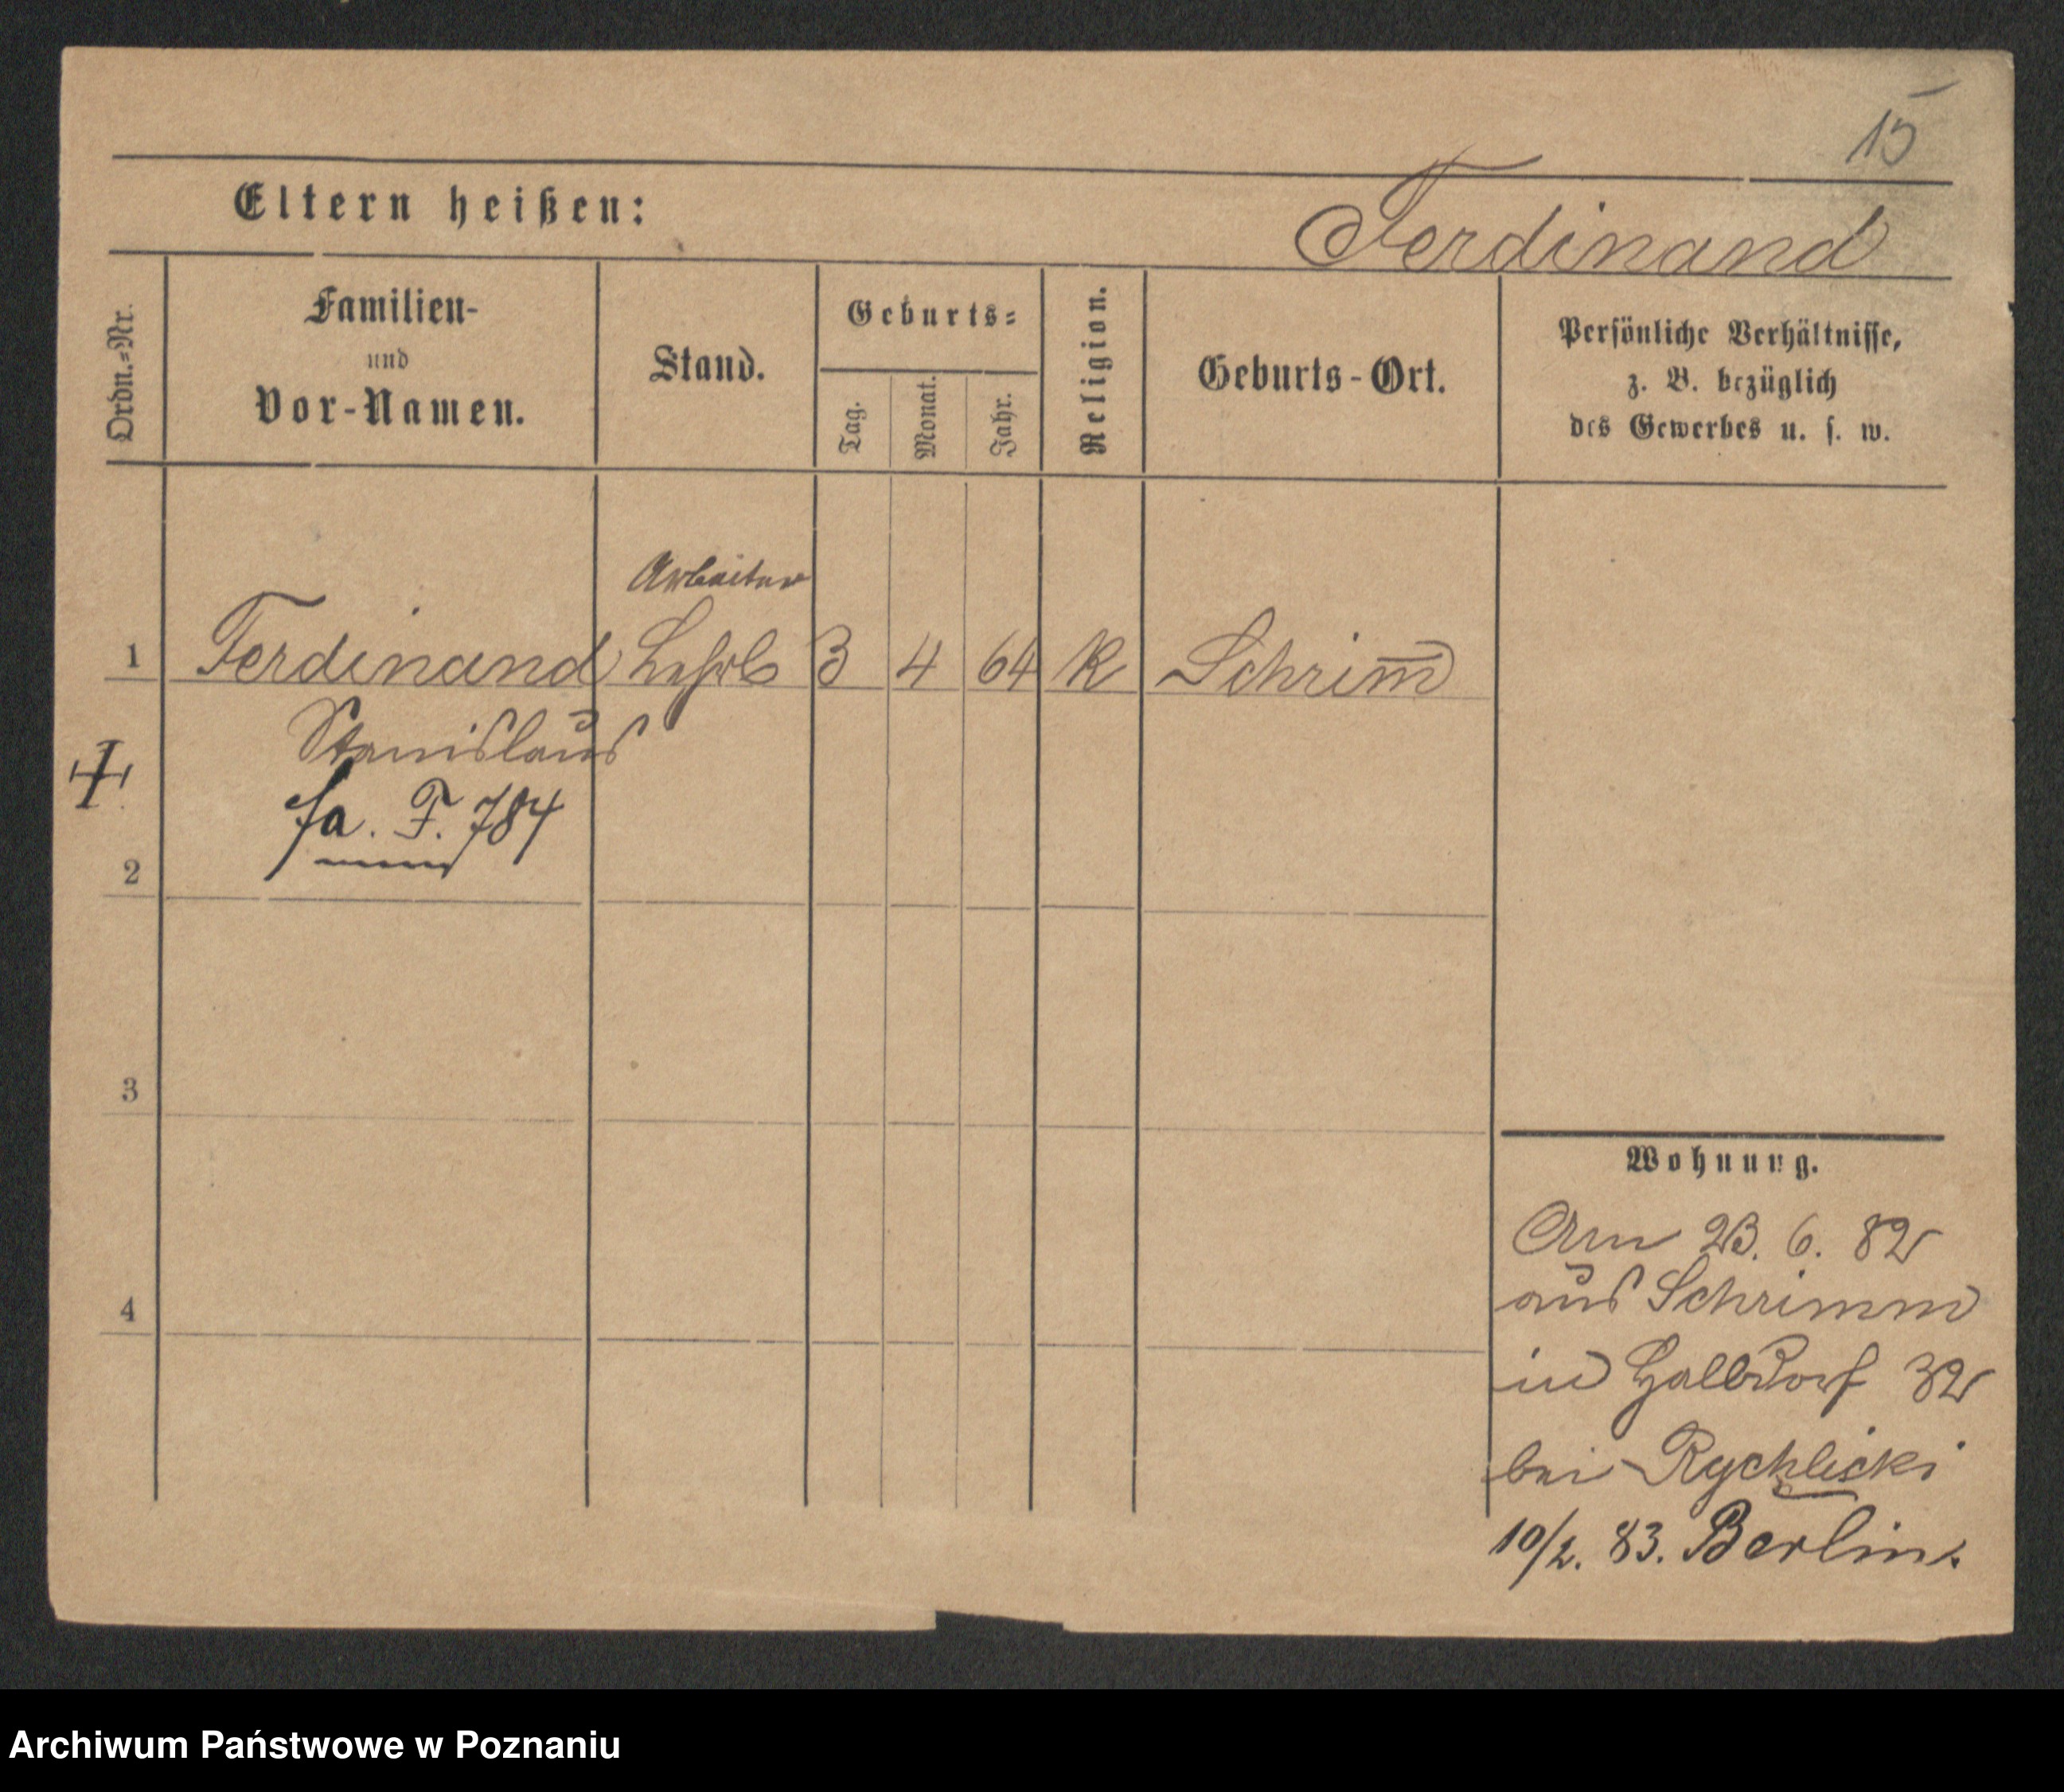 15
Eltern heißen:
Ferdinand
Ordn.=Nr.
Familien-
und
Vor-Namen.
Stand.
Geburts=
Tag.
Monat.
Jahr.
Religion.
Geburts-Ort.
Persönliche Verhältnisse,
z. B. bezüglich
des Gewerbes u. s. w.
Arbeiter
1 Ferdinand Lehrl 3 4 64 K Schrim̅
Stanislaus
fa. F. 784
2
3
4
Wohnung.
Am 23. 6. 82
aus Schrimm
in Halbdorf 32
bei Rychlicki
10/2. 83. Berlin.
Archiwum Państwowe w Poznaniu